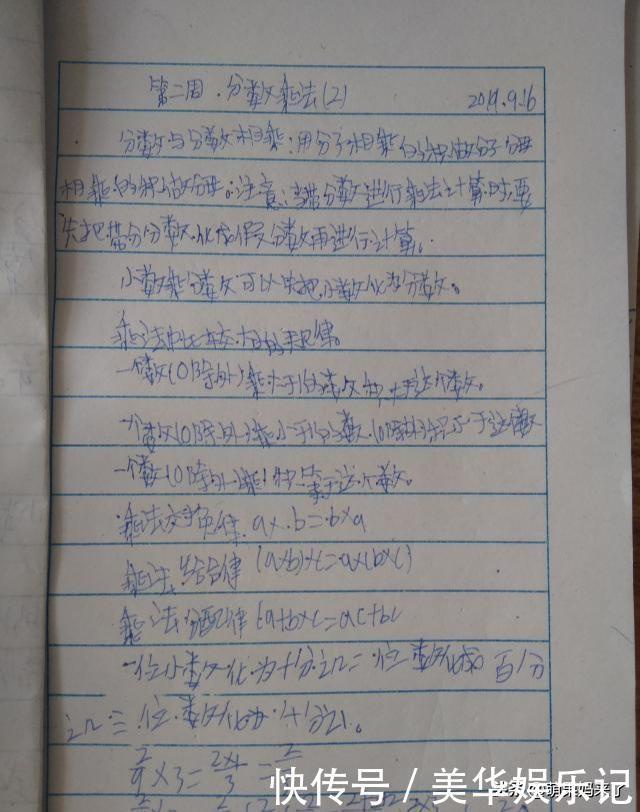 第二周.分数乘法(2) 2019.9.16
分数与分数相乘:用分子相乘的积做分子分母
相乘的积做分母。注意:当带分数进行乘法计算时,要
先把带分数化成假分数再进行计算。
小数乘分数可以先把小数化为分数。
乘法中比较大小规律。
一个数(0除外)乘大于1的数,积大于这个数。
一个数(0除外)乘小于1的数(0除外)积小于这个数
一个数(0除外)乘1积等于这个数。
乘法交换律.a×b=b×a
乘法结合律(a×b)×c=a×(b×c)
乘法分配律(a+b)×c=ac+bc
一位小数化为十分之几二位数化成百分
之几三位数化为千分之几。
2/9×3=
快传号/美华娱乐记
萌果妈来了